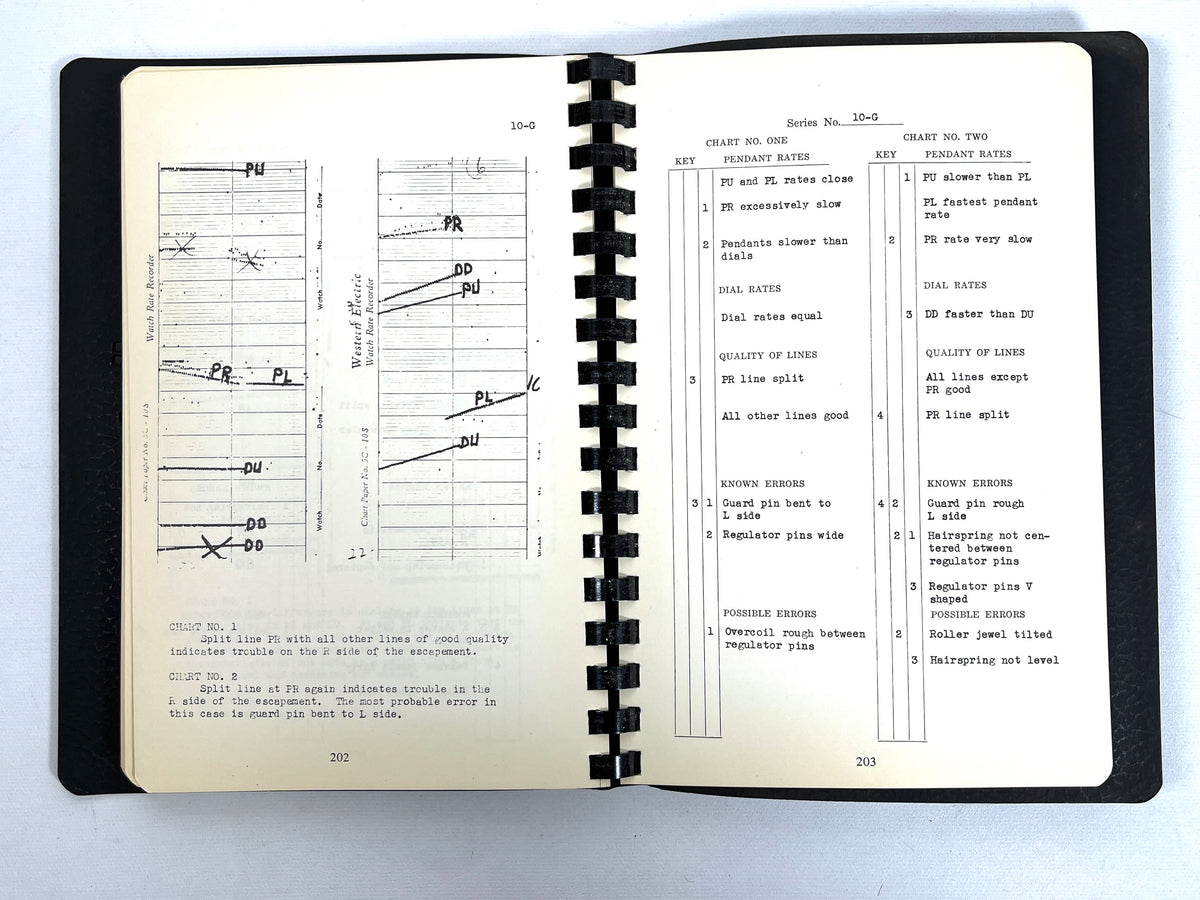 10-G
PU
PR
PL
DU
DD
DD
Watch Rate Recorder
Date
No.
Watch
Date
No.
Watch
PR
DD
PU
PL
DU
Western Electric
Watch Rate Recorder
Chart Paper No. 3C - 10S
22
CHART NO. 1
Split line PR with all other lines of good quality
indicates trouble on the R side of the escapement.
CHART NO. 2
Split line at PR again indicates trouble in the
R side of the escapement. The most probable error in
this case is guard pin bent to L side.
202
Series No. 10-G
CHART NO. ONE
KEY PENDANT RATES
PU and PL rates close
1 PR excessively slow
2 Pendants slower than
dials
DIAL RATES
Dial rates equal
QUALITY OF LINES
3 PR line split
All other lines good
KNOWN ERRORS
3 1 Guard pin bent to
L side
2 Regulator pins wide
POSSIBLE ERRORS
1 Overcoil rough between
regulator pins
CHART NO. TWO
KEY PENDANT RATES
1 PU slower than PL
PL fastest pendant
rate
2 PR rate very slow
DIAL RATES
3 DD faster than DU
QUALITY OF LINES
All lines except
PR good
4 PR line split
KNOWN ERRORS
4 2 Guard pin rough
L side
2 1 Hairspring not cen-
tered between
regulator pins
3 Regulator pins V
shaped
POSSIBLE ERRORS
2 Roller jewel tilted
3 Hairspring not level
203